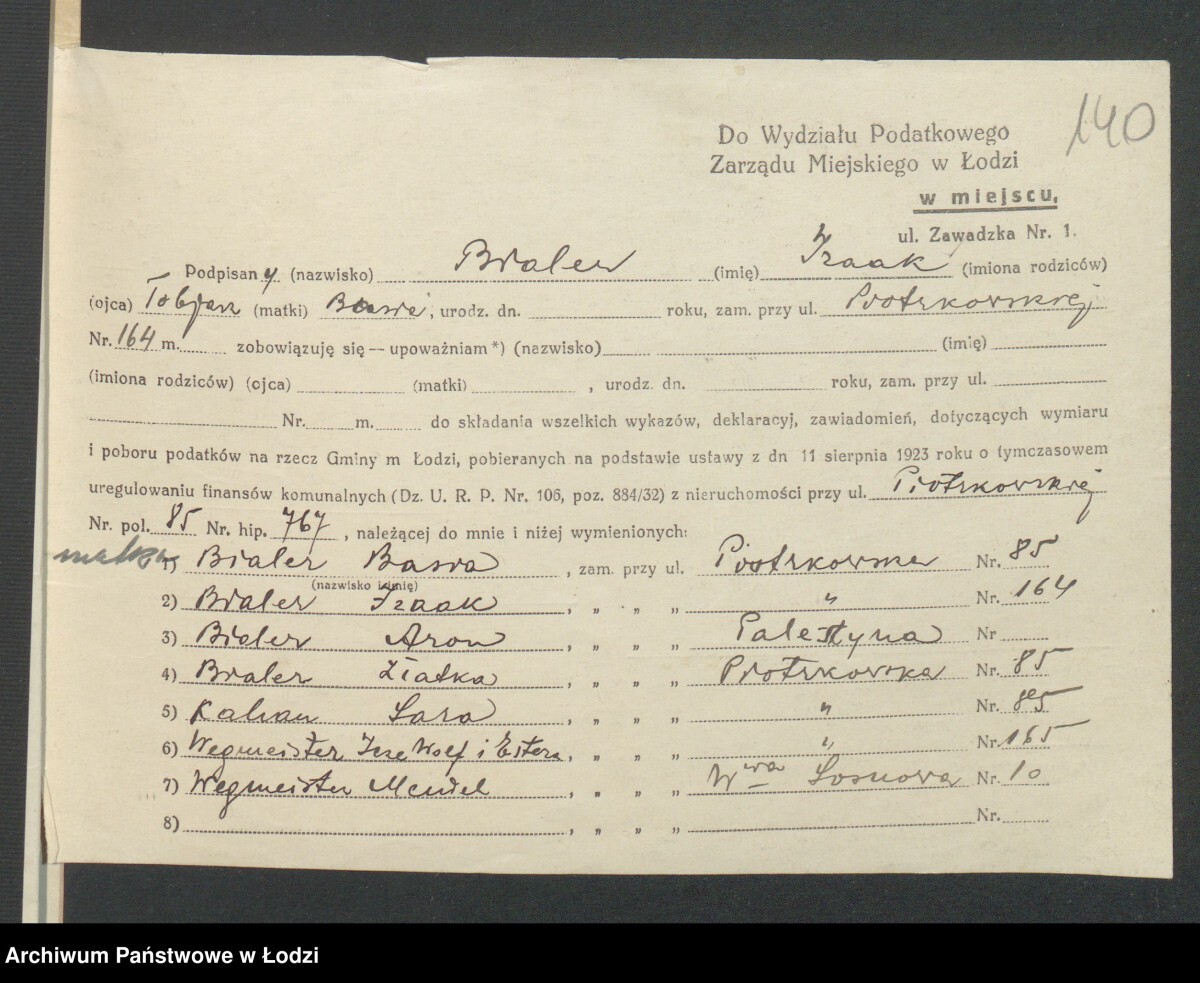 140
Do Wydziału Podatkowego
Zarządu Miejskiego w Łodzi
w miejscu,
ul. Zawadzka Nr. 1.
Podpisany (nazwisko) Bialer (imię) Izaak (imiona rodziców)
(ojca) Tobjasz (matki) Basia, urodz. dn. roku, zam. przy ul. Piotrkowskiej
Nr. 164 m. zobowiązuję się — upoważniam *) (nazwisko) (imię)
(imiona rodziców) (ojca) (matki) , urodz. dn. roku, zam. przy ul.
Nr. m. do składania wszelkich wykazów, deklaracyj, zawiadomień, dotyczących wymiaru
i poboru podatków na rzecz Gminy m Łodzi, pobieranych na podstawie ustawy z dn 11 sierpnia 1923 roku o tymczasowem
uregulowaniu finansów komunalnych (Dz. U. R. P. Nr. 106, poz. 884/32) z nieruchomości przy ul. Piotrkowskiej
Nr. pol. 85 Nr. hip. 767, należącej do mnie i niżej wymienionych:
matka 1) Bialer Basia, zam. przy ul. Piotrkowska Nr. 85
(nazwisko i imię)
2) Bialer Izaak, „ „ „ „ Nr. 164
3) Bialer Aron, „ „ „ Palestyna Nr
4) Bialer Złatka, „ „ „ Piotrkowska Nr. 85
5) Kahan Sara, „ „ „ „ Nr. 85
6) Wegmeister Wolf i Estera, „ „ „ „ Nr. 165
7) Wegmeister Mendel, „ „ „ Wwa Sosnowa Nr. 10
8) , „ „ „ Nr.
Archiwum Państwowe w Łodzi